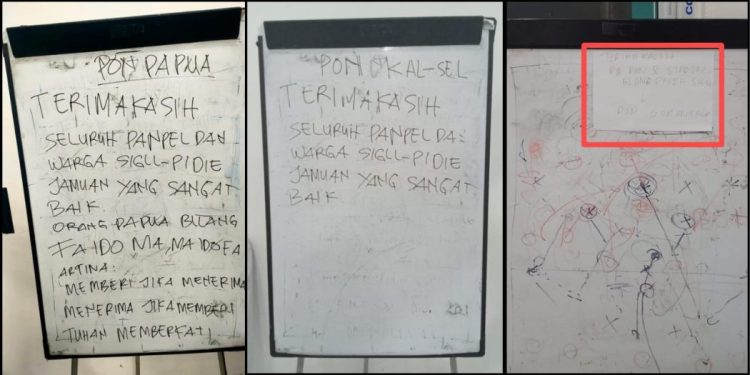 PON PAPUA
TERIMAKASIH
SELURUH PANPEL DAN
WARGA SIGLL-PIDIE
JAMUAN YANG SANGAT
BAIK.
ORANG PAPUA BILANG
FAIDO MA, MA IDOFA
ARTINA:
MEMBERI JIKA MENERIMA
MENERIMA JIKA MEMBERI
TUHAN MEMBERKATI
PON KAL-SEL
TERIMAKASIH
SELURUH PANPEL DA
WARGA SIGLL-PIDIE
JAMUAN YANG SANGAT
BAIK.
TERIMAKASIH